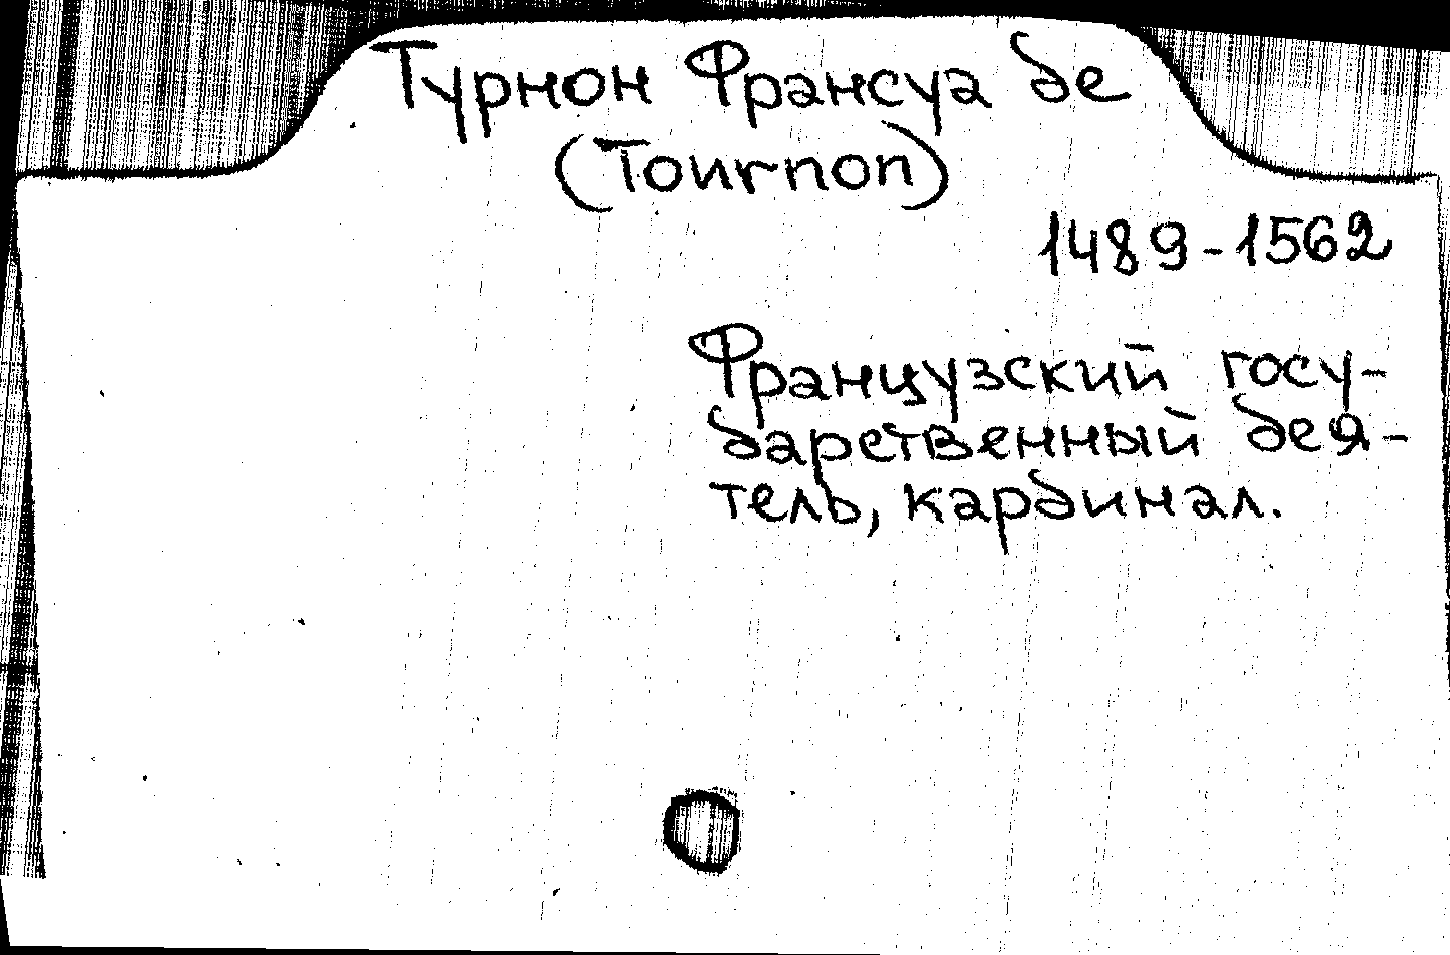 Турнон Франсуа де
(Tournon)
1489-1562
Французский госу-
дарственный дея-
тель, кардинал.